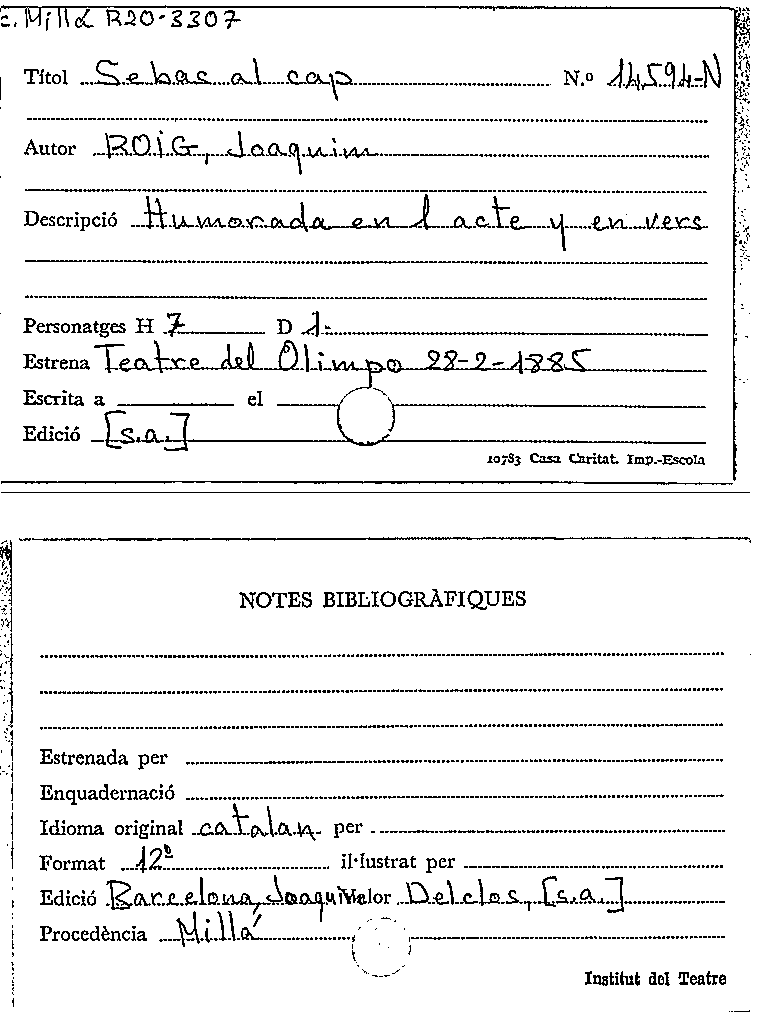 c. Millá R20-3307
Títol Sebas al cap N.º 14594-N
Autor ROIG, Joaquim
Descripció Humorada en 1 acte y en vers
Personatges H 7 D 1.
Estrena Teatre del Olimpo 28-2-1885
Escrita a el
Edició [s.a.]
10783 Casa Caritat. Imp.-Escola
NOTES BIBLIOGRÀFIQUES
Estrenada per
Enquadernació
Idioma original catalan per
Format 12º il·lustrat per
Edició Barcelona, Joaquim Valor Delclos, [s.a.]
Procedència Millá
Institut del Teatre